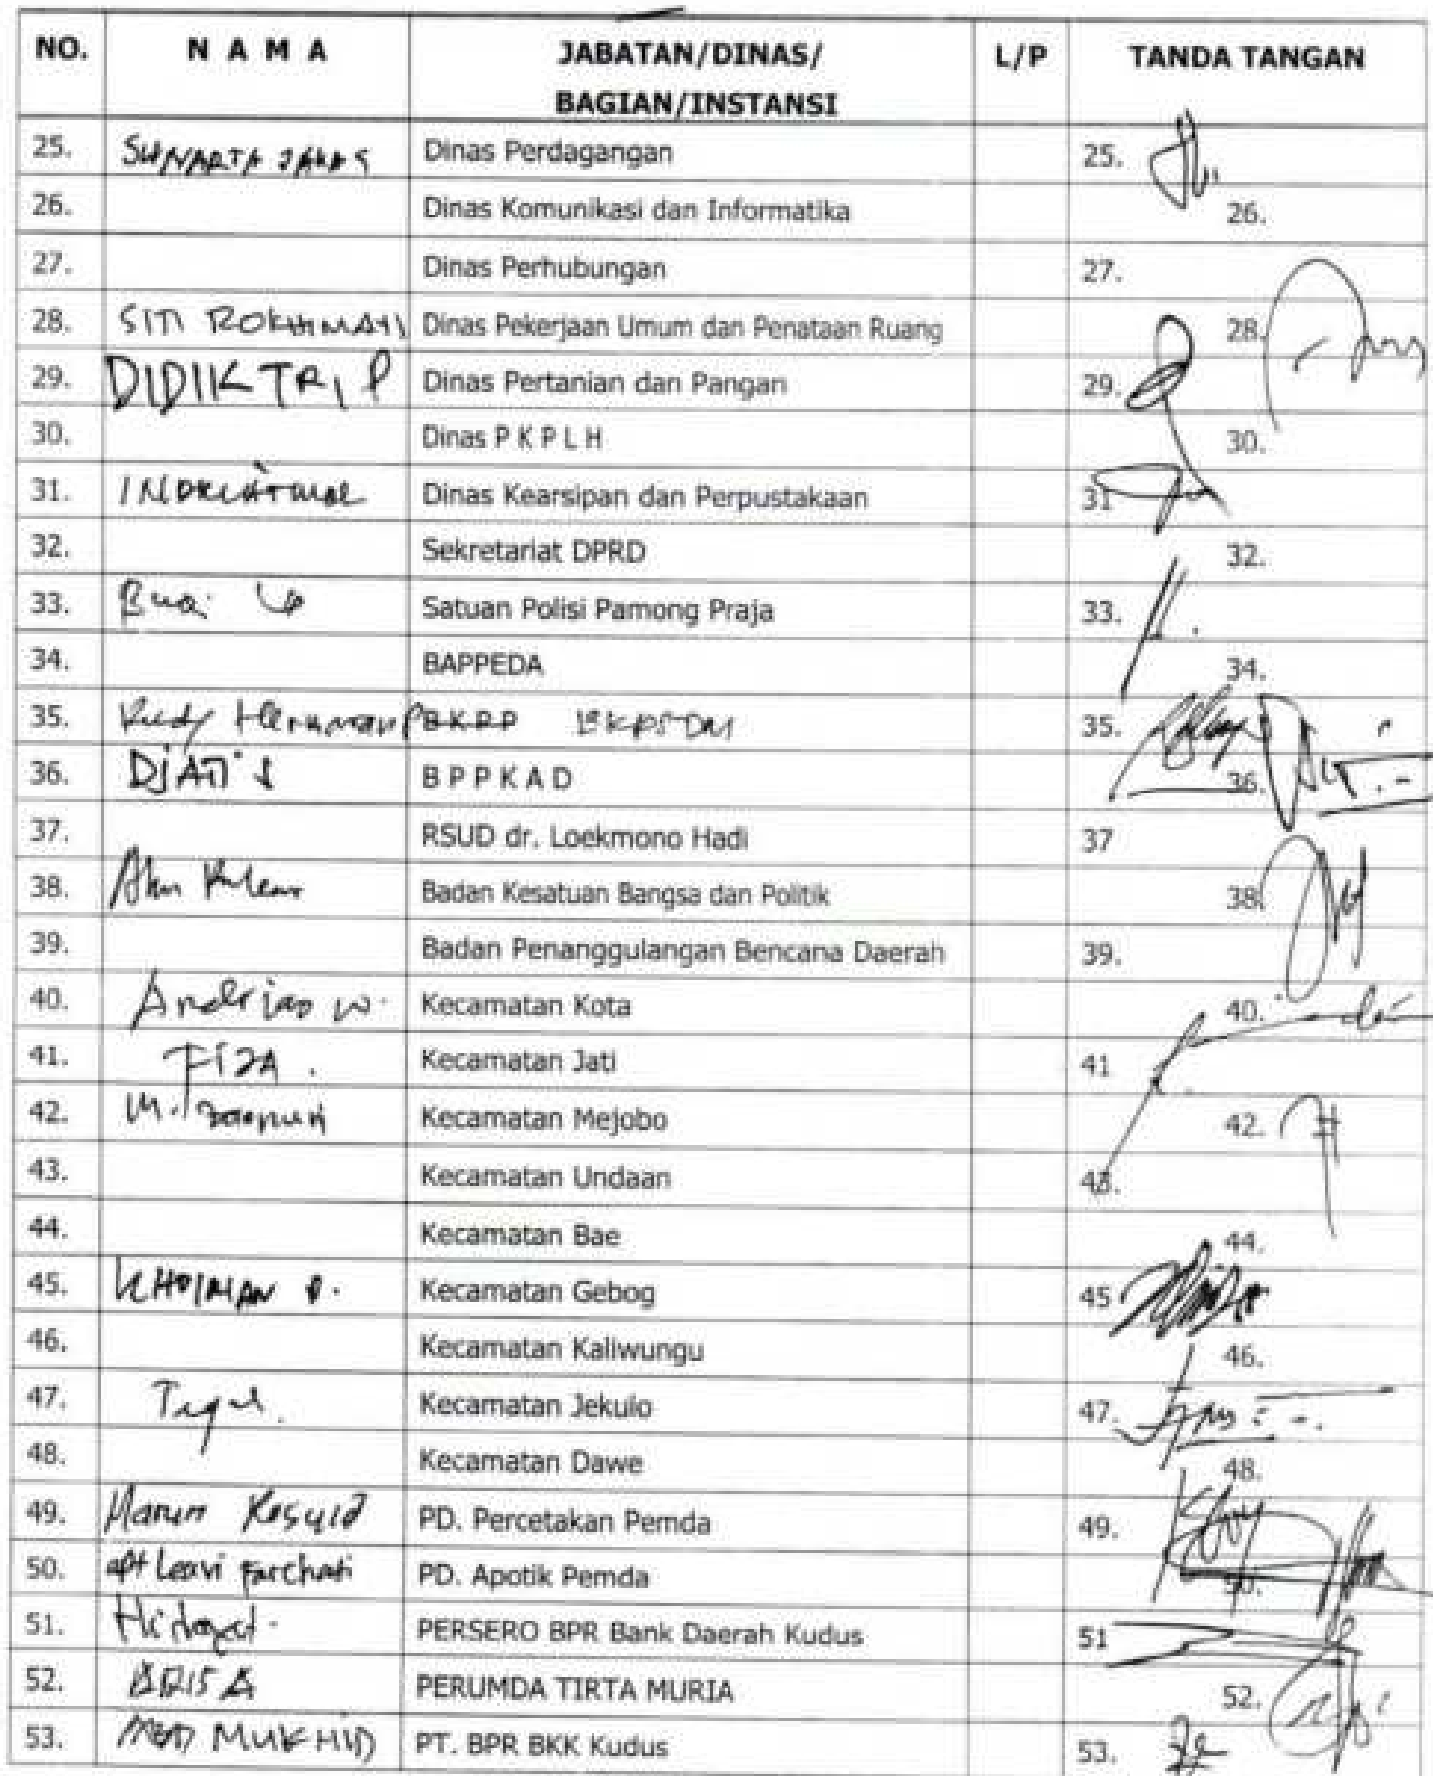 NO. N A M A JABATAN/DINAS/ L/P TANDA TANGAN
BAGIAN/INSTANSI
25. SUNARTA Dinas Perdagangan 25.
26. Dinas Komunikasi dan Informatika 26.
27. Dinas Perhubungan 27.
28. SITI ROKHMATI Dinas Pekerjaan Umum dan Penataan Ruang 28.
29. DIDIK TRI P Dinas Pertanian dan Pangan 29.
30. Dinas P K P L H 30.
31. Dinas Kearsipan dan Perpustakaan 31
32. Sekretariat DPRD 32.
33. Satuan Polisi Pamong Praja 33.
34. BAPPEDA 34.
35. Rudy Hermawan BKPP BKPSDM 35.
36. DJATI S B P P K A D 36.
37. RSUD dr. Loekmono Hadi 37
38. Badan Kesatuan Bangsa dan Politik 38.
39. Badan Penanggulangan Bencana Daerah 39.
40. Andrias w. Kecamatan Kota 40.
41. FIZA. Kecamatan Jati 41
42. M. Kecamatan Mejobo 42.
43. Kecamatan Undaan 43.
44. Kecamatan Bae 44.
45. Kecamatan Gebog 45
46. Kecamatan Kaliwungu 46.
47. Kecamatan Jekulo 47.
48. Kecamatan Dawe 48.
49. Harun Rosyid PD. Percetakan Pemda 49.
50. apt Leavi Farchati PD. Apotik Pemda 50.
51. Hidayat. PERSERO BPR Bank Daerah Kudus 51
52. ARIS A PERUMDA TIRTA MURIA 52.
53. MUKHID PT. BPR BKK Kudus 53.